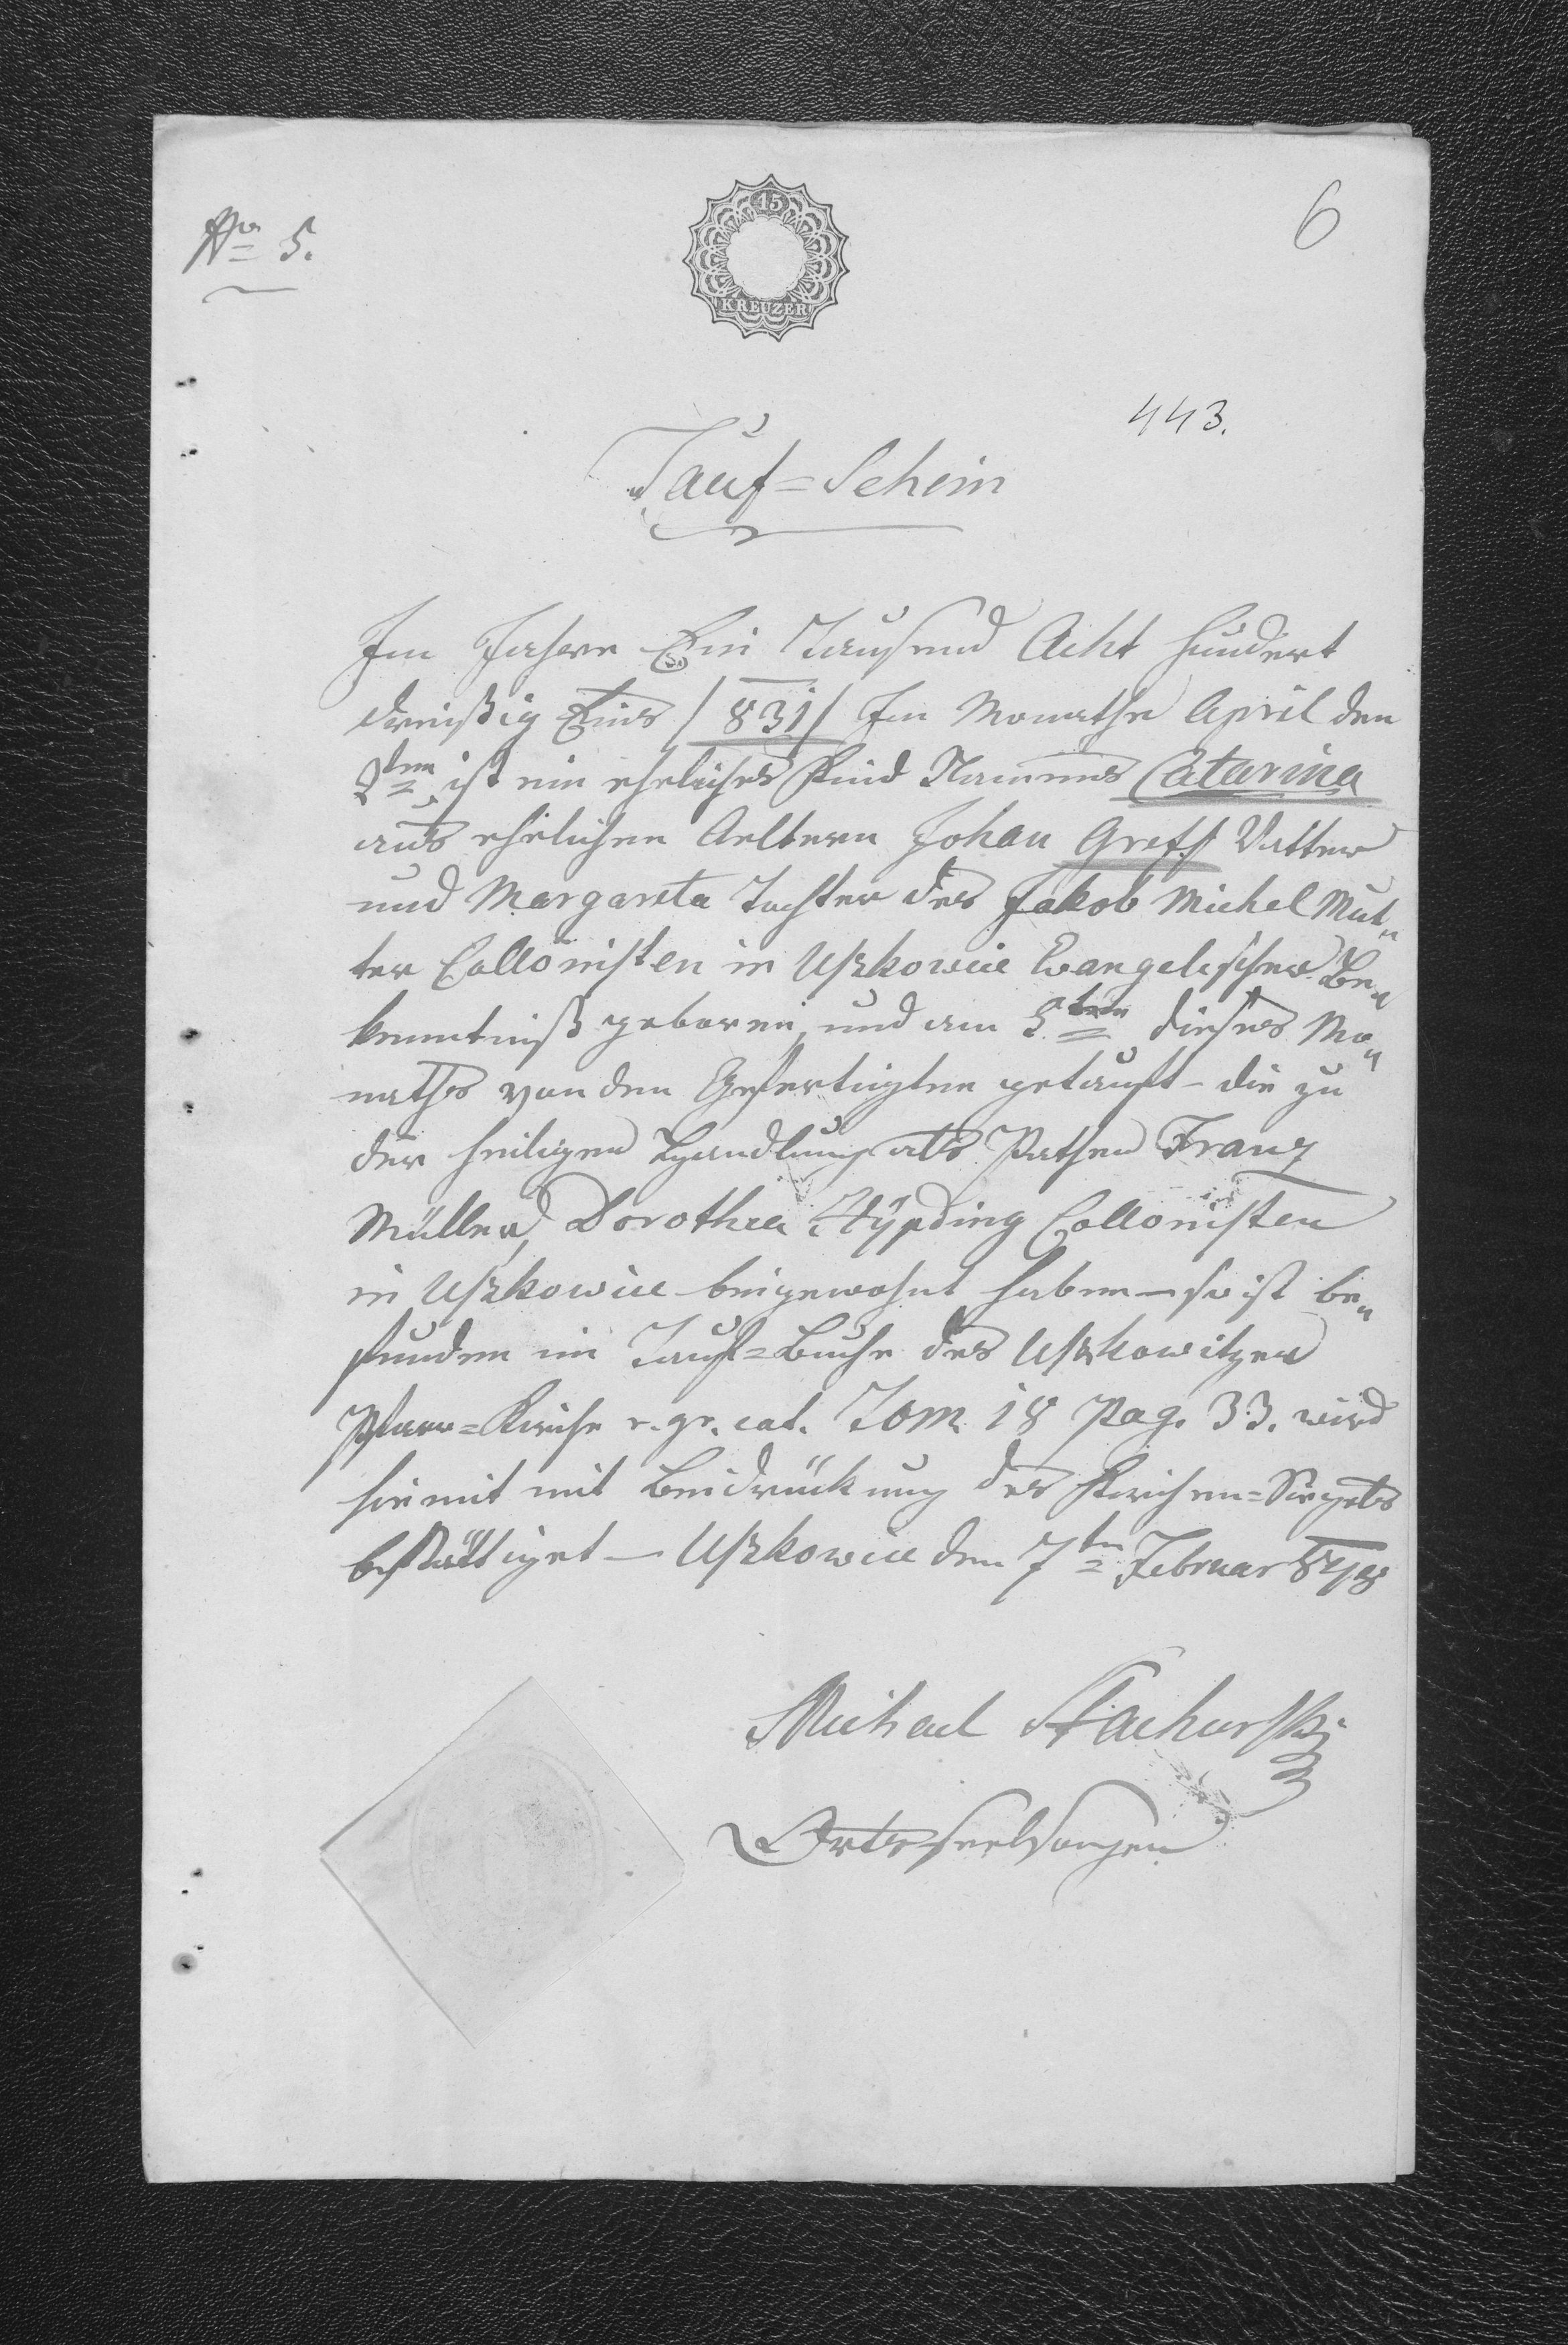 No 5.
15
KREUZER
6
443.
Tauf=Schein
Im Jahre Ein Tausend Acht hundert
dreißig Eins /831/ Im Monathe April den
2ten ist ein eheliches Kind Namens Catarina
aus ehelichen Aeltern Johan Greff Vatter
und Margareta Tochter des Jakob Michel Mut„
ter Collonisten in Uszkowice Evangelischer Be„
kenntniß geboren, und am 5ten dieses Mo„
naths von den Gefertigten getauft – die zu
der heiligen Handlung als Pathen Franz
Müller, Dorothea Collonisten
in Uszkowice beigewohnt haben – so ist be„
funden im Tauf=Buche des Uszkowitzer
Pfarr=Kirche r. gr. cat. Tom 18 Pag. 33. wird
hiemit mit Beidrückung des Kirchen=Siegels
bestättiget – Uszkowice den 7ten Februar 878
Michael Stachurski
Ortsseelsorger